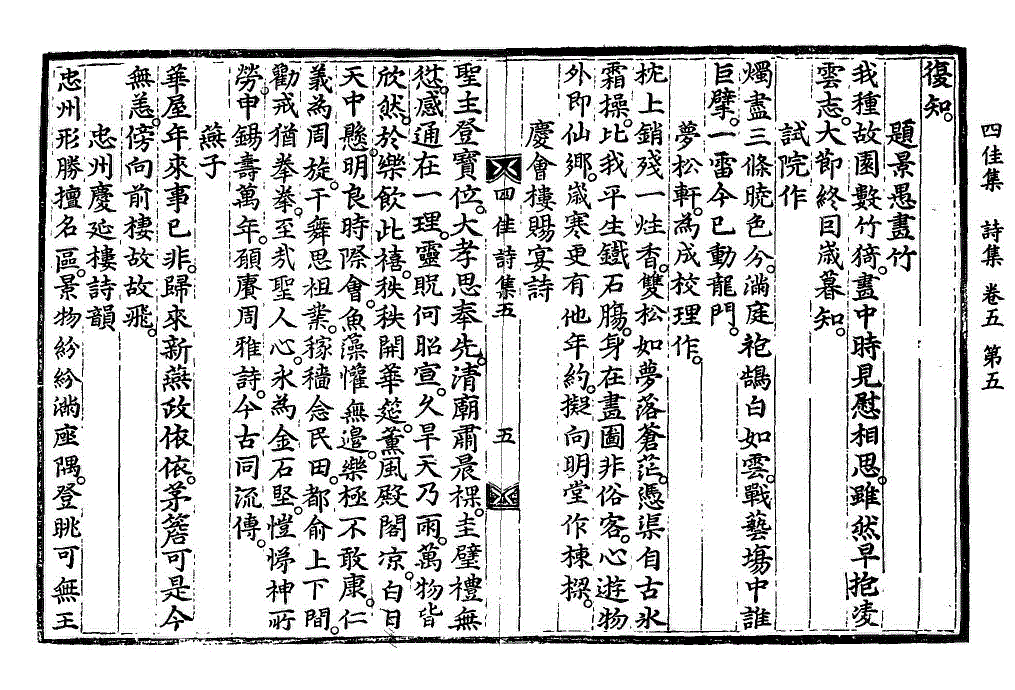 四佳集　詩集　卷五　第五
復知。
題景愚畫竹
我種故園數竹猗。畫中時見慰相思。雖然早抱凌
雲志。大節終因歲暮知。
試院作
燭盡三條曉色分。滿庭袍鵠白如雲。戰藝塲中誰
巨擘。一雷今已動龍門。
夢松軒。爲成校理作。
枕上銷殘一炷香。雙松如夢落蒼茫。憑渠自古氷
霜操。比我平生鐵石腸。身在畫圖非俗客。心遊物
外即仙鄉。歲寒更有他年約。擬向明堂作棟樑。
慶會樓賜宴詩
四佳詩集五　五
聖主登寶位。大孝思奉先。清廟肅晨祼。圭璧禮無
愆。感通在一理。靈貺何昭宣。久旱天乃雨。萬物皆
欣然。於樂飮此禧。秩秩開華筵。薰風殿閣凉。白日
天中懸。明良時際會。魚藻懽無邊。樂極不敢康。仁
義爲周旋。干舞思祖業。稼穡念民田。都俞上下間。
勸戒猶拳拳。至哉聖人心。永爲金石堅。愷悌神所
勞。申錫壽萬年。願賡周雅詩。今古同流傳。
燕子
華屋年來事已非。歸來新燕政依依。茅簷可是今
無恙。傍向前樓故故飛。
忠州慶延樓詩韻
忠州形勝擅名區。景物紛紛滿座隅。登眺可無王